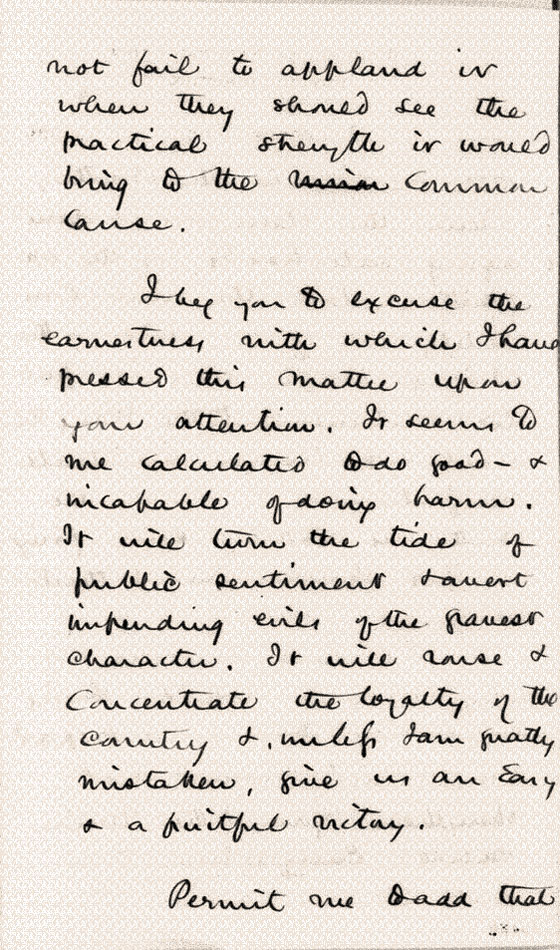 not fail to applaud it
when they should see the
practical strength it would
bring to the Union Common
Cause.
I beg you to excuse the
earnestness with which I have
pressed this matter upon
your attention. It seems to
me calculated to do good - &
incapable of doing harm.
It will turn the tide of
public sentiment & avert
impending evils of the gravest
character. It will rouse &
Concentrate the loyalty of the
country &, unless I am greatly
mistaken, give us an Easy
& a fruitful victory.
Permit me to add that